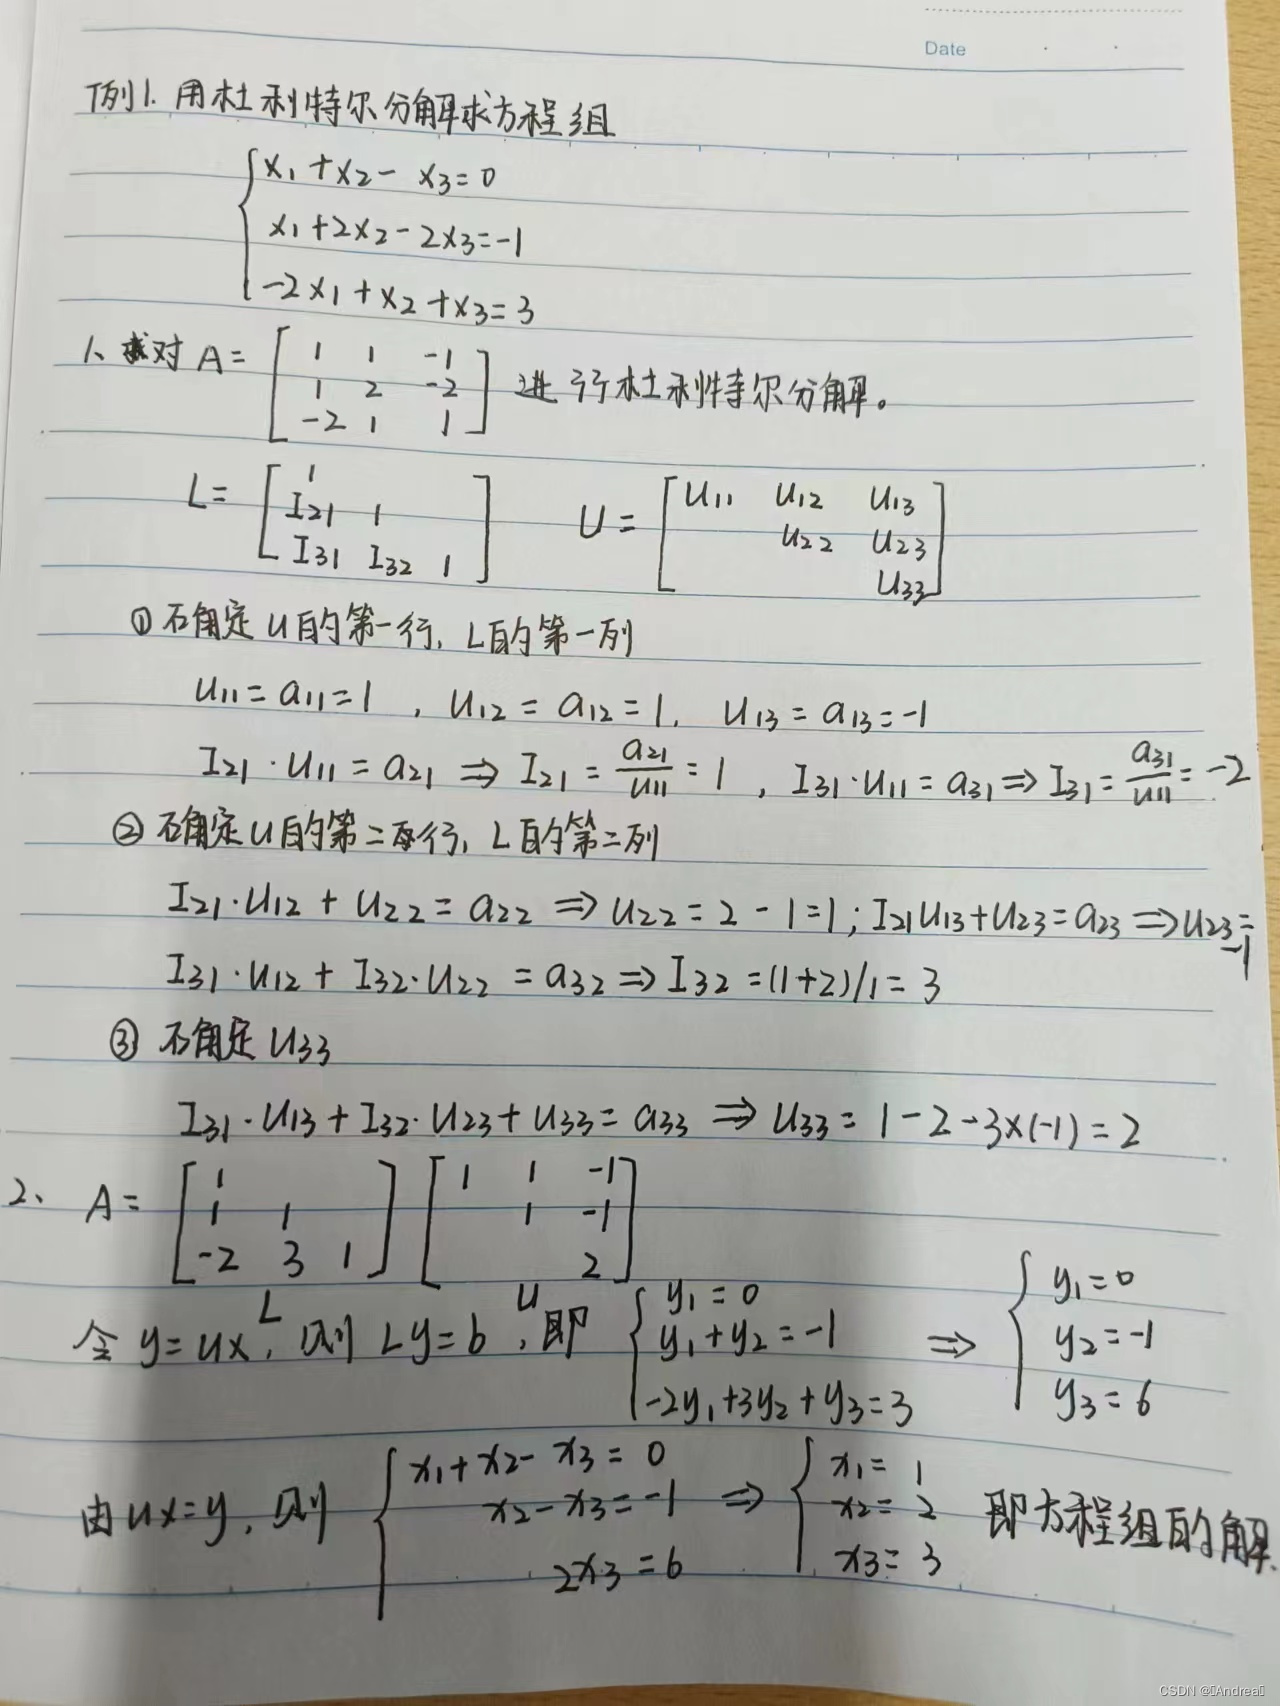 Date
例1. 用杜利特尔分解求方程组
x₁+x₂- x₃=0
x₁+2x₂-2x₃=-1
-2x₁+x₂+x₃=3
1、对A=[1 1 -1; 1 2 -2; -2 1 1] 进行杜利特尔分解。
L=[1; I₂₁ 1; I₃₁ I₃₂ 1] U=[u₁₁ u₁₂ u₁₃; u₂₂ u₂₃; u₃₃]
① 确定U的第一行, L的第一列
u₁₁=a₁₁=1 , u₁₂=a₁₂=1, u₁₃=a₁₃=-1
I₂₁·u₁₁=a₂₁⇒I₂₁=a₂₁/u₁₁=1 , I₃₁·u₁₁=a₃₁⇒I₃₁=a₃₁/u₁₁=-2
② 确定U的第二行, L的第二列
I₂₁·u₁₂+u₂₂=a₂₂⇒u₂₂=2-1=1; I₂₁u₁₃+u₂₃=a₂₃⇒u₂₃=-1
I₃₁·u₁₂+I₃₂·u₂₂=a₃₂⇒I₃₂=(1+2)/1=3
③ 确定u₃₃
I₃₁·u₁₃+I₃₂·u₂₃+u₃₃=a₃₃⇒u₃₃=1-2-3×(-1)=2
2、A=[1; 1 1; -2 3 1][1 1 -1; 1 -1; 2]
L U
令y=ux, 则Ly=b, 即
y₁=0
y₁+y₂=-1
-2y₁+3y₂+y₃=3
⇒
y₁=0
y₂=-1
y₃=6
由ux=y, 则
x₁+x₂-x₃=0
x₂-x₃=-1
2x₃=6
⇒
x₁=1
x₂=2
x₃=3
即方程组的解.